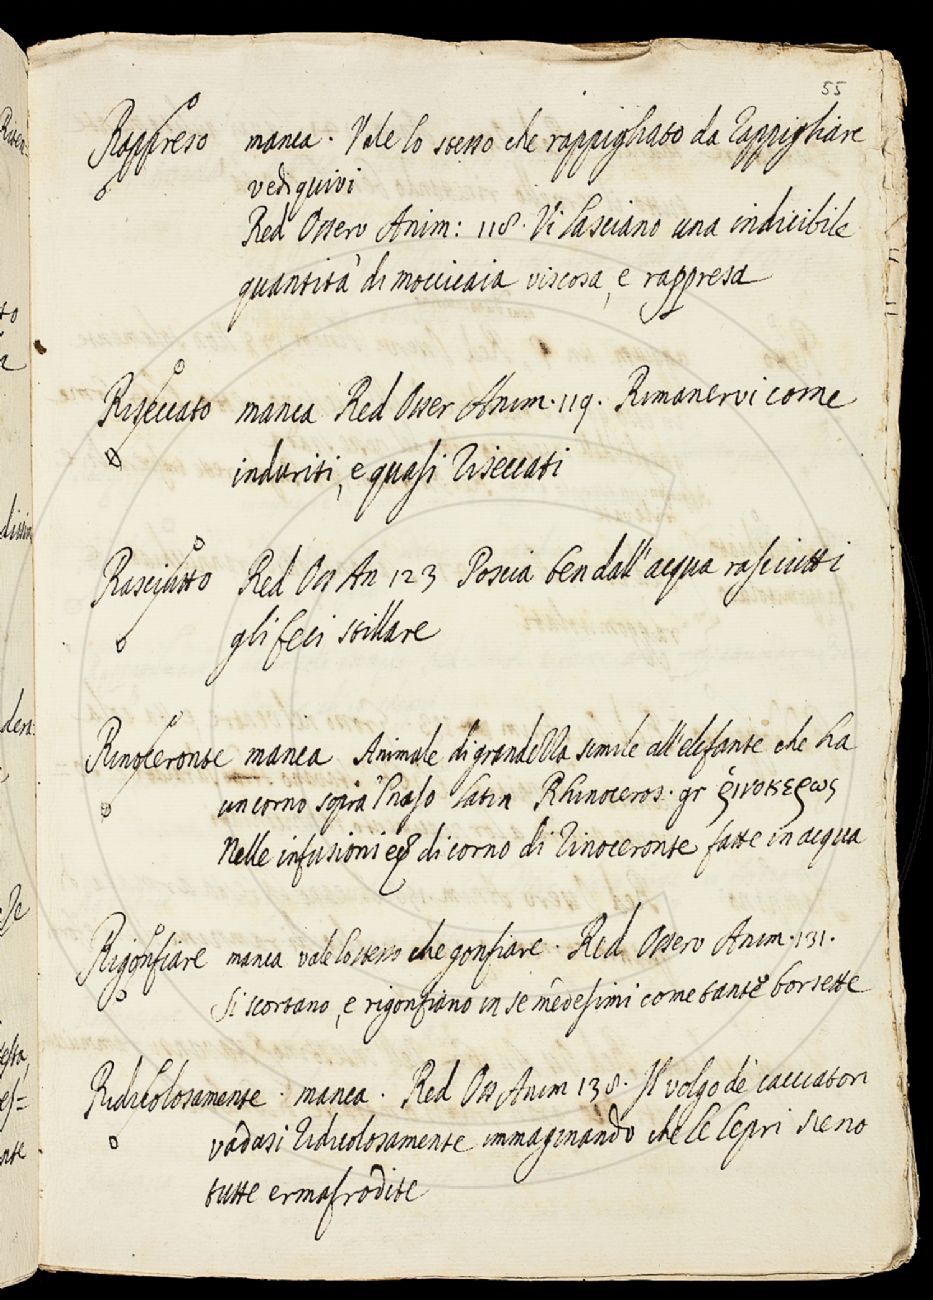 55
Rappreso manca. Vale lo stesso che rappigliato da Rappigliare
vedi quivi
Red Osserv Anim: 118. Vi lasciano una indicibile
quantità di moccicaia viscosa, e rappresa
Riseccato manca Red Osser Anim. 119. Rimanervi come
induriti, e quasi riseccati
Rasciutto Red Oss An 123 Poscia ben dall'acqua rasciutti
gli feci stillare
Rinoceronte manca Animale di grandezza simile all'elefante che ha
un corno sopra 'l naso latin Rhinoceros. gr ῥινοκερως
Nelle infusioni di corno di rinoceronte fatte in acqua
Rigonfiare manca vale lo stesso che gonfiare. Red Osserv Anim. 131.
Si scortano, e rigonfiano in se medesimi come tante borsette
Ridicolosamente. manca. Red Oss Anim 138. Il volgo de' cacciatori
vadasi ridicolosamente immaginando che le lepri sieno
tutte ermafrodite